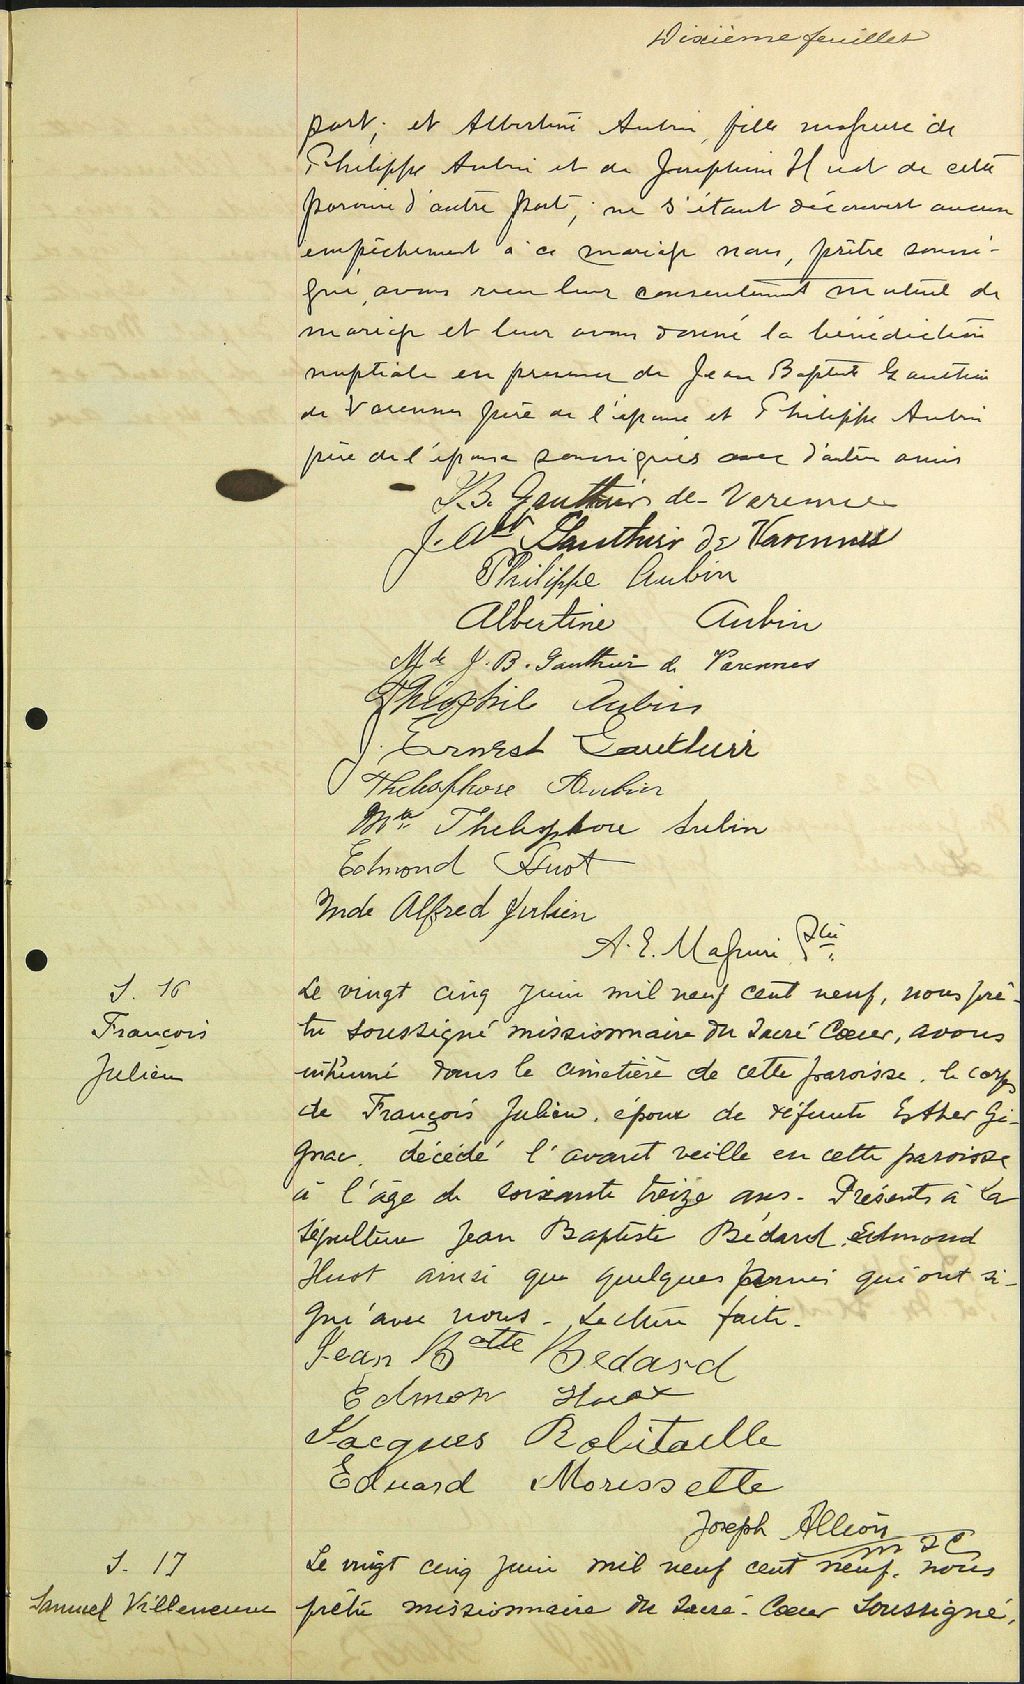 Dixième feuillet
part; et Albertine Aubin, fille majeure de
Philippe Aubin et de Joséphine Huot de cette
paroisse d'autre part; ne s'étant découvert aucun
empêchement à ce mariage nous, prêtre soussi-
gné, avons reçu leur consentement mutuel de
mariage et leur avons donné la bénédiction
nuptiale en présence de Jean Baptiste Gauthier
de Varennes père de l'époux et Philippe Aubin
père de l'épouse soussignés avec d'autres amis
J.B. Gauthier de-Varenne
J. Abt Gauthier de Varennes
Philippe Aubin
Albertine Aubin
Mde J. B. Gauthier de Varennes
Théophile Aubin
J. Ernest Gauthier
Thelesphore Aubin
Mde Thelesphore Aubin
Edmond Huot
Mde Alfred Julien
A. E. Maguire Ptre
S. 16
François
Julien
Le vingt cinq juin mil neuf cent neuf, nous prê-
tre soussigné missionnaire du Sacré Cœur, avons
inhumé dans le cimetière de cette paroisse, le corps
de François Julien, époux de défunte Esther Gi-
gnac, décédé l'avant veille en cette paroisse
à l'âge de soixante treize ans. Présents à la
sépulture Jean Baptiste Bédard, Edmond
Huot ainsi que quelques parents qui ont si-
gné avec nous. Lecture faite.
Jean Btte Bedard
Edmon Huot
Jacques Robitaille
Eduard Morissette
Joseph Allion
m s c
S. 17
Samuel Villeneuve
Le vingt cinq juin mil neuf cent neuf, nous
prêtre missionnaire du Sacré-Cœur soussigné,